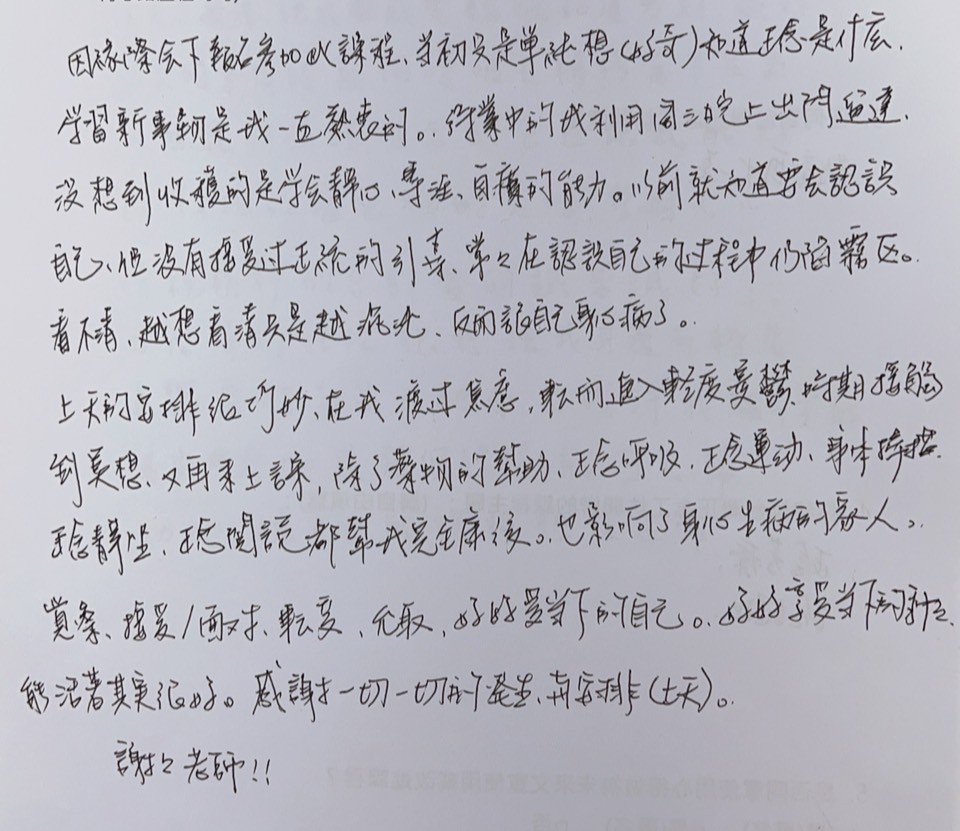 因緣際会下報名參加此課程、当初只是单純想(好奇)知道正念是什麼.
学習新事物是我一直熱衷的。待業中的我利用周三晚上出門遛達,
没想到收穫的是学会靜心、專注、自癒的能力。以前就知道要去認識
自己、但没有接受过正統的引導、常々在認識自己的过程中仍陷霧区。
看不清、越想看清只是越混沌、反而説自己身心病了。
上天的安排很巧妙、在我渡过焦慮、転而進入軽度憂鬱時期接觸
到冥想、又再来上課, 除了藥物的幫助、正念呼吸、正念運动、身体掃描.
正念靜坐、正念閱讀都幫我完全康復。也影响了身心生病的家人。
覚察、接受/面对、転变、允取、好好愛当下的自己。好好享受当下的种々
能活著其実很好。感謝一切一切的発生、安排(上天)。
謝々老師!!